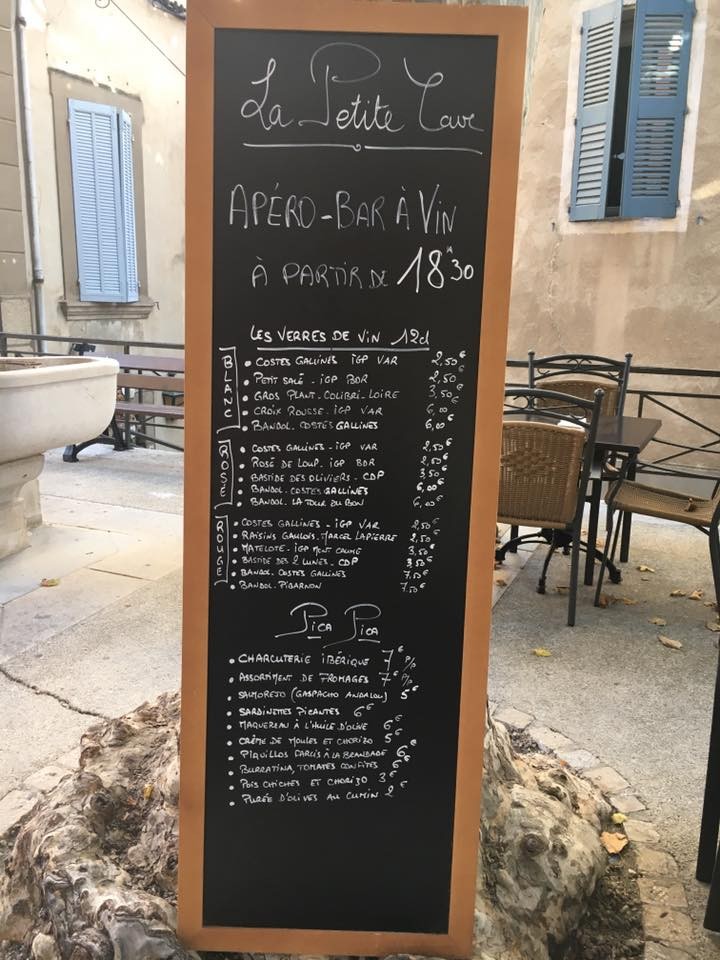 La Petite Cave
APÉRO-BAR À VIN
À PARTIR DE 18H30
LES VERRES DE VIN 12cl
BLANC
• COSTES GALLINES IGP VAR 2,50€
• PETIT SALÉ - IGP BDR 2,50€
• GROS PLANT - COLIBRI - LOIRE 3,50€
• CROIX ROUSSE - IGP VAR 6,00€
• BANDOL - COSTES GALLINES 6,00€
ROSÉ
• COSTES GALLINES - IGP VAR 2,50€
• ROSÉ DE LOUP - IGP BDR 2,50€
• BASTIDE DES OLIVIERS - CDP 3,50€
• BANDOL - COSTES GALLINES 6,00€
• BANDOL - LA TOUR DU BON 6,00€
ROUGE
• COSTES GALLINES - IGP VAR 2,50€
• RAISINS GAULOIS - MARCEL LAPIERRE 2,50€
• MATELOTE - IGP MONT CAUME 3,50€
• BASTIDE DES 2 LUNES - CDP 3,50€
• BANDOL - COSTES GALLINES 7,50€
• BANDOL - PIBARNON 7,50€
PICA PICA
• CHARCUTERIE IBÉRIQUE 7€ P/P
• ASSORTIMENT DE FROMAGES 7€ P/P
• SALMOREJO (GASPACHO ANDALOU) 5€
• SARDINETTES PICANTES 6€
• MAQUEREAU À L'HUILE D'OLIVE 6€
• CRÈME DE MOULES ET CHORIZO 5€
• PIQUILLOS FARCIS À LA BRANDADE 6€
• BURRATINA, TOMATES CONFITES 6€
• POIS CHICHES ET CHORIZO 3€
• PURÉE D'OLIVES AU CUMIN 2€